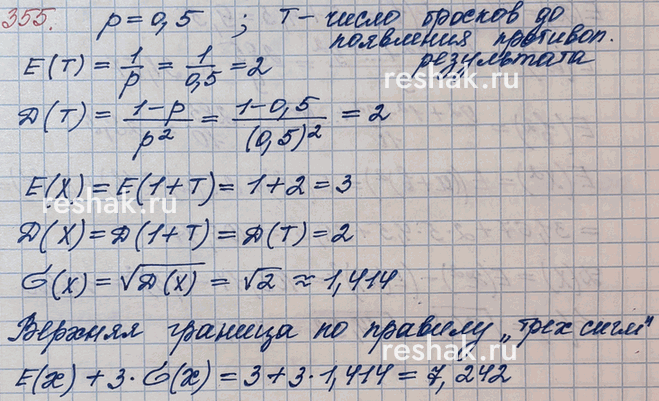 355. p = 0,5 ; T – число бросков до
появления противоп.
результата
E(T) = 1/p = 1/0,5 = 2
D(T) = (1-p)/p² = (1-0,5)/(0,5)² = 2
E(X) = E(1+T) = 1+2 = 3
D(X) = D(1+T) = D(T) = 2
σ(x) = √D(x) = √2 ≈ 1,414
Верхняя граница по правилу „трех сигм"
E(x) + 3·σ(x) = 3+3·1,414 = 7,242
reshak.ru
reshak.ru
reshak.ru
reshak.ru